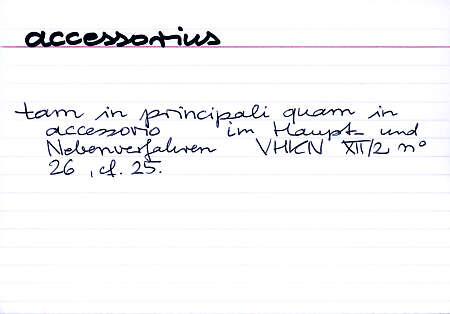 accessorius
tam in principali quam in
accessorio im Haupt- und
Nebenverfahren VHKN XII/2 n°
26, cf. 25.